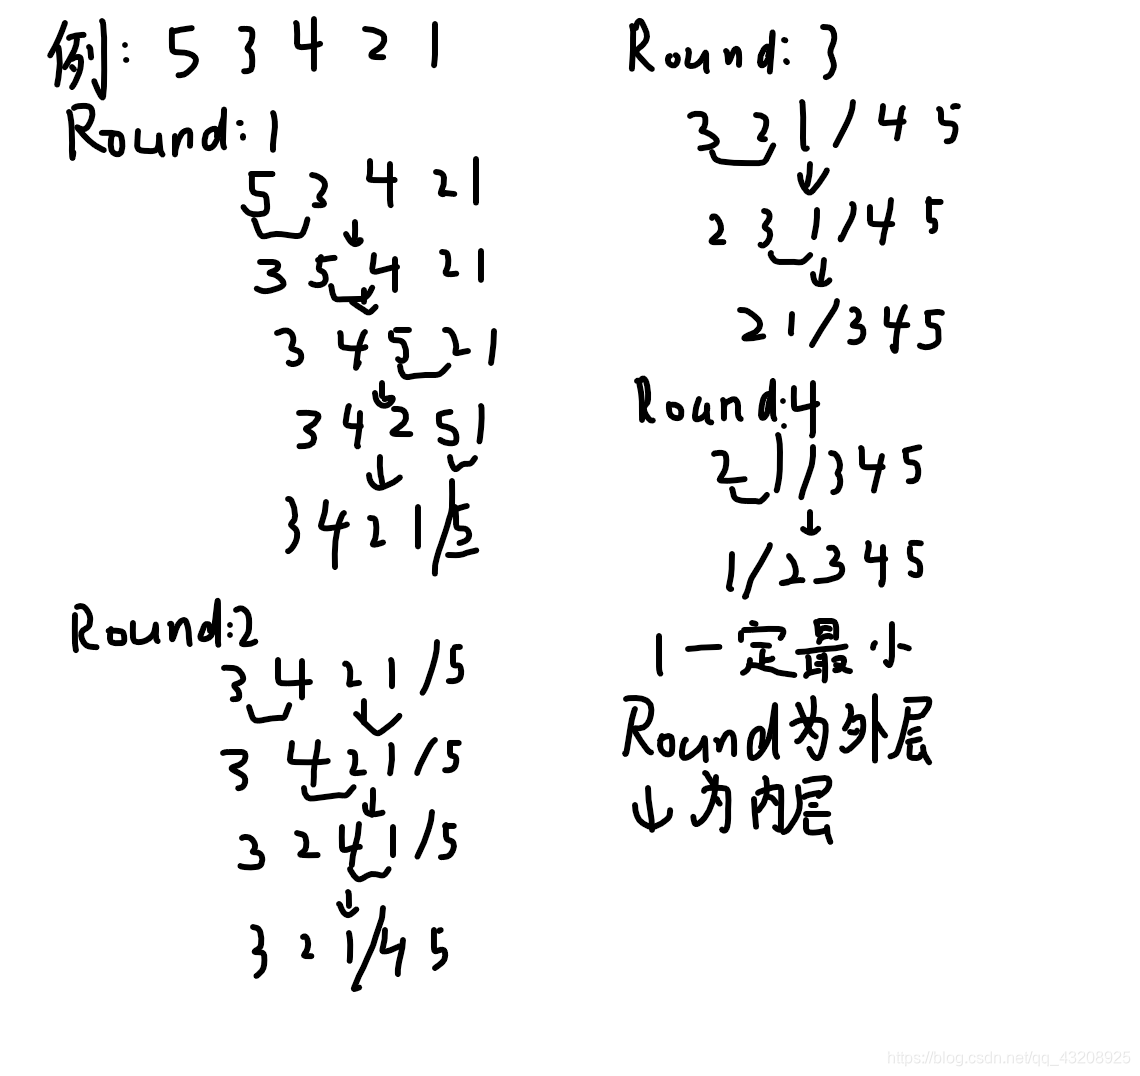 例: 5 3 4 2 1
Round: 1
5 3 4 2 1
3 5 4 2 1
3 4 5 2 1
3 4 2 5 1
3 4 2 1 / 5
Round: 2
3 4 2 1 / 5
3 4 2 1 / 5
3 2 4 1 / 5
3 2 1 / 4 5
Round: 3
3 2 1 / 4 5
2 3 1 / 4 5
2 1 / 3 4 5
Round: 4
2 1 / 3 4 5
1 / 2 3 4 5
1 一定最小
Round为外层
↓为内层
https://blog.csdn.net/qq_43208925